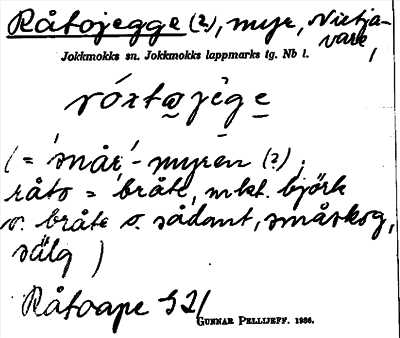 Råtojegge (2), myr, Nietja-
vare,
Jokkmokks sn. Jokkmokks lappmarks tg. Nb l.
(= 'snår'-myren (?);
råto = bråte, mkt. björk
o. bråte o. sådant, småskog,
sälg)
Råtoape S2/
GUNNAR PELLIJEFF. 1986.